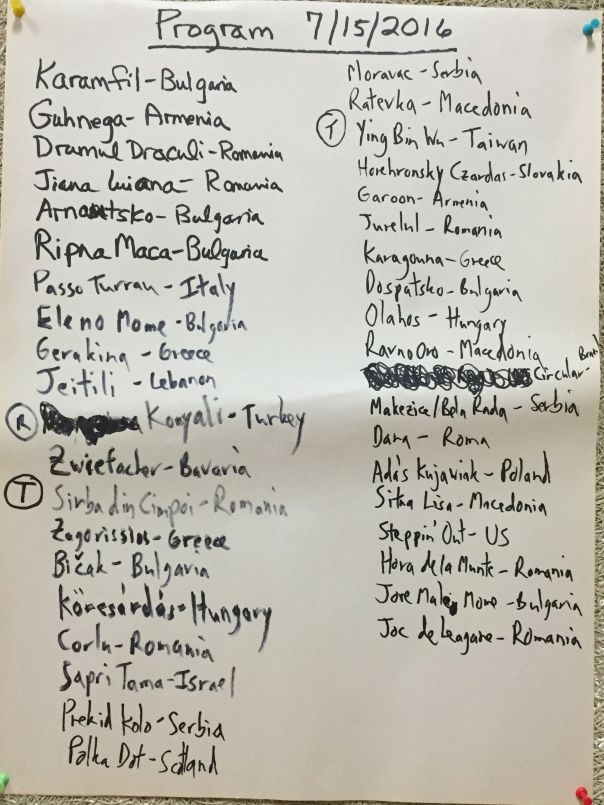 Program 7/15/2016
Karamfil - Bulgaria
Guhnega - Armenia
Dramul Draculi - Romania
Jiana Luiana - Romania
Arnautsko - Bulgaria
Ripna Maca - Bulgaria
Passo Turrau - Italy
Eleno Mome - Bulgaria
Gerakina - Greece
Jeitili - Lebanon
R Konyali - Turkey
Zwiefacher - Bavaria
T Sirba din Cimpoi - Romania
Zagorissios - Greece
Bičak - Bulgaria
Körcsárdás - Hungary
Corlu - Romania
Sapri Tama - Israel
Prekid Kolo - Serbia
Polka Dot - Scotland
Moravac - Serbia
Ratevka - Macedonia
T Ying Bin Wu - Taiwan
Horehronsky Czardas - Slovakia
Garoon - Armenia
Jurelul - Romania
Karagouna - Greece
Dospatsko - Bulgaria
Olahos - Hungary
Ravno Oro - Macedonia
Circular - Brazil
Makezice/Bela Rada - Serbia
Dana - Roma
Adás Kujawiak - Poland
Sitna Lisa - Macedonia
Steppin' Out - US
Hora de la Munte - Romania
Jove Male Mome - Bulgaria
Joc de Leagane - Romania